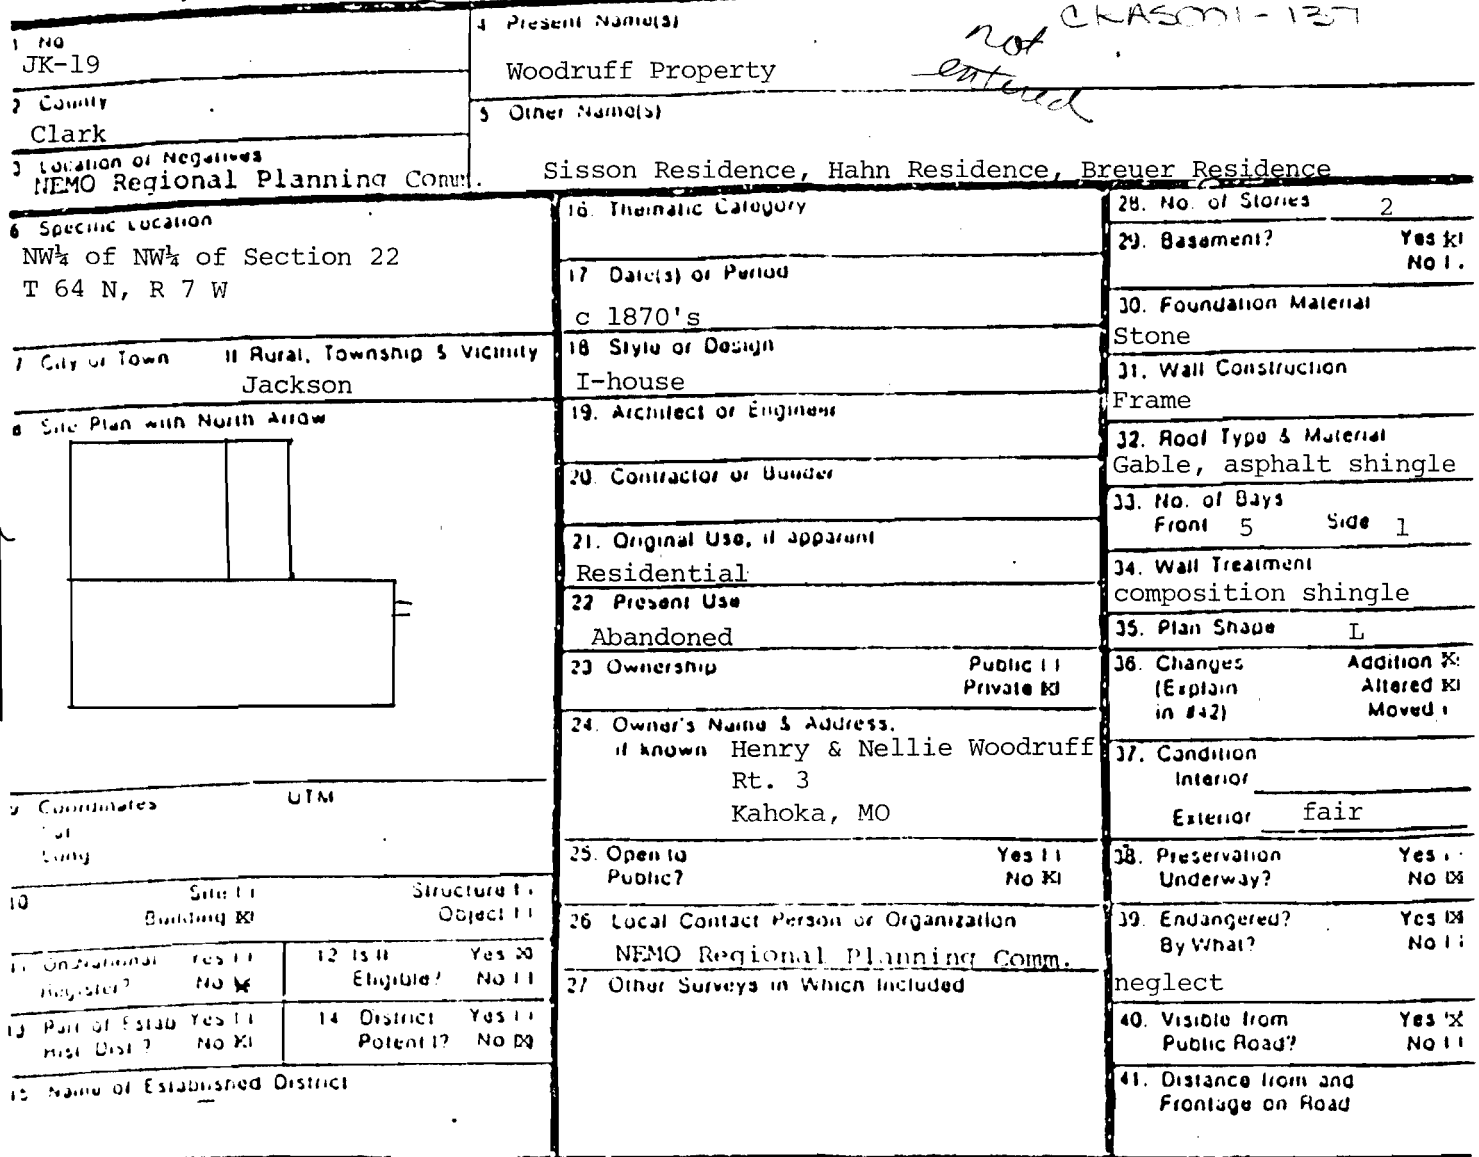 1 No
JK-19
2 County
Clark
3 Location of Negatives
NEMO Regional Planning Comm.
4 Present Name(s)
Woodruff Property
not entered
5 Other Name(s)
Sisson Residence, Hahn Residence, Breuer Residence
6 Specific Location
NW¼ of NW¼ of Section 22
T 64 N, R 7 W
7 City or Town If Rural, Township & Vicinity
Jackson
8 Site Plan with North Arrow
9 Coordinates UTM
Lat
Long
10 Site [ ] Structure [ ]
Building [X] Object [ ]
11 On National Register? Yes [ ] No [X]
12 Is It Eligible? Yes [X] No [ ]
13 Part of Estab Hist. Dist.? Yes [ ] No [X]
14 District Potent'l? Yes [ ] No [X]
15 Name of Established District
16. Thematic Category
17 Date(s) or Period
c 1870's
18 Style or Design
I-house
19. Architect or Engineer
20. Contractor or Builder
21. Original Use, if apparent
Residential
22 Present Use
Abandoned
23 Ownership Public [ ]
Private [X]
24. Owner's Name & Address,
if known Henry & Nellie Woodruff
Rt. 3
Kahoka, MO
25. Open to Yes [ ]
Public? No [X]
26 Local Contact Person or Organization
NEMO Regional Planning Comm.
27 Other Surveys in Which Included
28. No. of Stories 2
29. Basement? Yes [X]
No [ ]
30. Foundation Material
Stone
31. Wall Construction
Frame
32. Roof Type & Material
Gable, asphalt shingle
33. No. of Bays
Front 5 Side 1
34. Wall Treatment
composition shingle
35. Plan Shape L
36. Changes Addition [X]
(Explain Altered [X]
in #42) Moved [ ]
37. Condition
Interior
Exterior fair
38. Preservation Yes [ ]
Underway? No [X]
39. Endangered? Yes [X]
By What? No [ ]
neglect
40. Visible from Yes [X]
Public Road? No [ ]
41. Distance from and
Frontage on Road